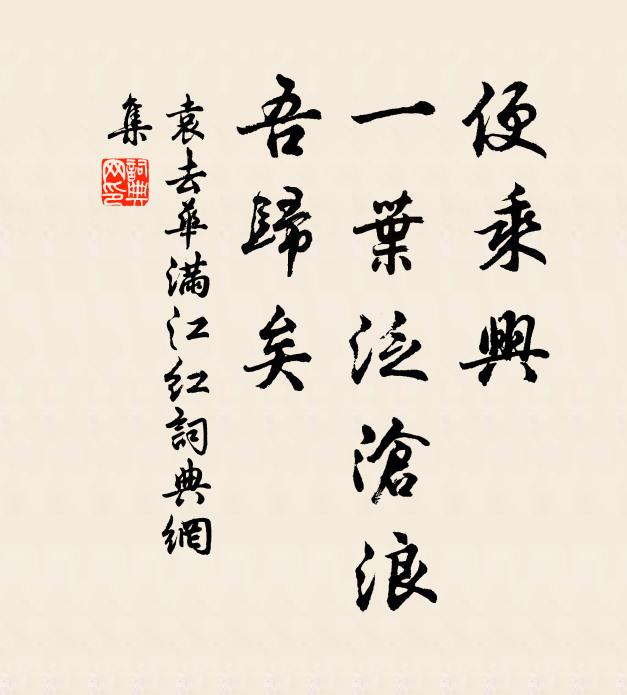 便乘興
一葉泛滄浪
吾歸矣
袁去華滿江紅詞典網
集
詞典
网印